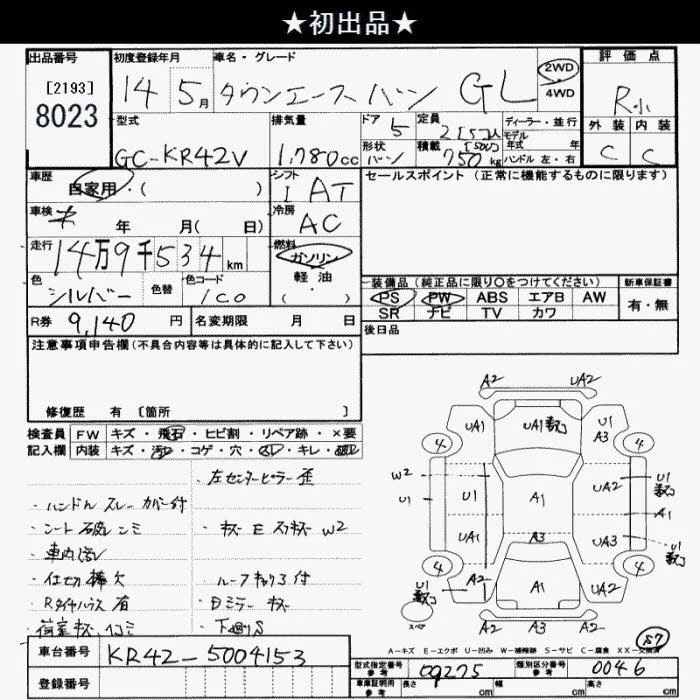 ★初出品★
出品番号
[2193]
8023
初度登録年月
14 5月
車名・グレード
タウンエース バン GL
2WD
4WD
評価点
R
外装 内装
C C
型式
GC-KR42V
排気量
1,780cc
ドア 5
形状 バン
定員
積載
750kg
ディーラー・並行
モデル
年式 年
ハンドル 左・右
車歴
自家用・( )
シフト
AT
セールスポイント (正常に機能するものに限ります)
車検
年 月( 日)
冷房
AC
走行
14万9千534km
燃料
ガソリン
軽油
( )
色
シルバー
色替
色コード
1C0
装備品 (純正品に限り○をつけてください)
PS PW ABS エアB AW
SR ナビ TV カワ
新車保証書
有・無
R券 9,140円
名変期限 月 日
後日品
注意事項申告欄(不具合内容等は具体的に記入して下さい)
修復歴 有 [箇所 ]
検査員
記入欄
FW キズ・飛石・ヒビ割・リペア跡・×要
内装 キズ・汚レ・コゲ・穴・・キレ・破レ
・左センターピラー歪
・ハンドル スレ カバー付
・シート破レ シミ
・キズ E W2
・車内汚レ
・仕切棒欠
・ルーフキャリア付
・Rタイヤハウス 有
・Dミラー キズ
・荷室キズ
・下廻りS
A2 UA2
UA1 UA1 U1
A3
4 4
W2
U1
U1 A1 UA2 U1
A1
UA1 A3 UA3
U1
4 4
U1 A2 A1 UA2
スペア
A2 A3 A2
57
A-キズ E-エクボ U-凹み W-補修跡 S-サビ C-腐食 XX-交換済
車台番号
KR42-5004153
登録番号
型式指定番号
参考
09275
類別区分番号
参考
0046
車庫証明用
参考
長さ cm
幅 cm
高さ cm